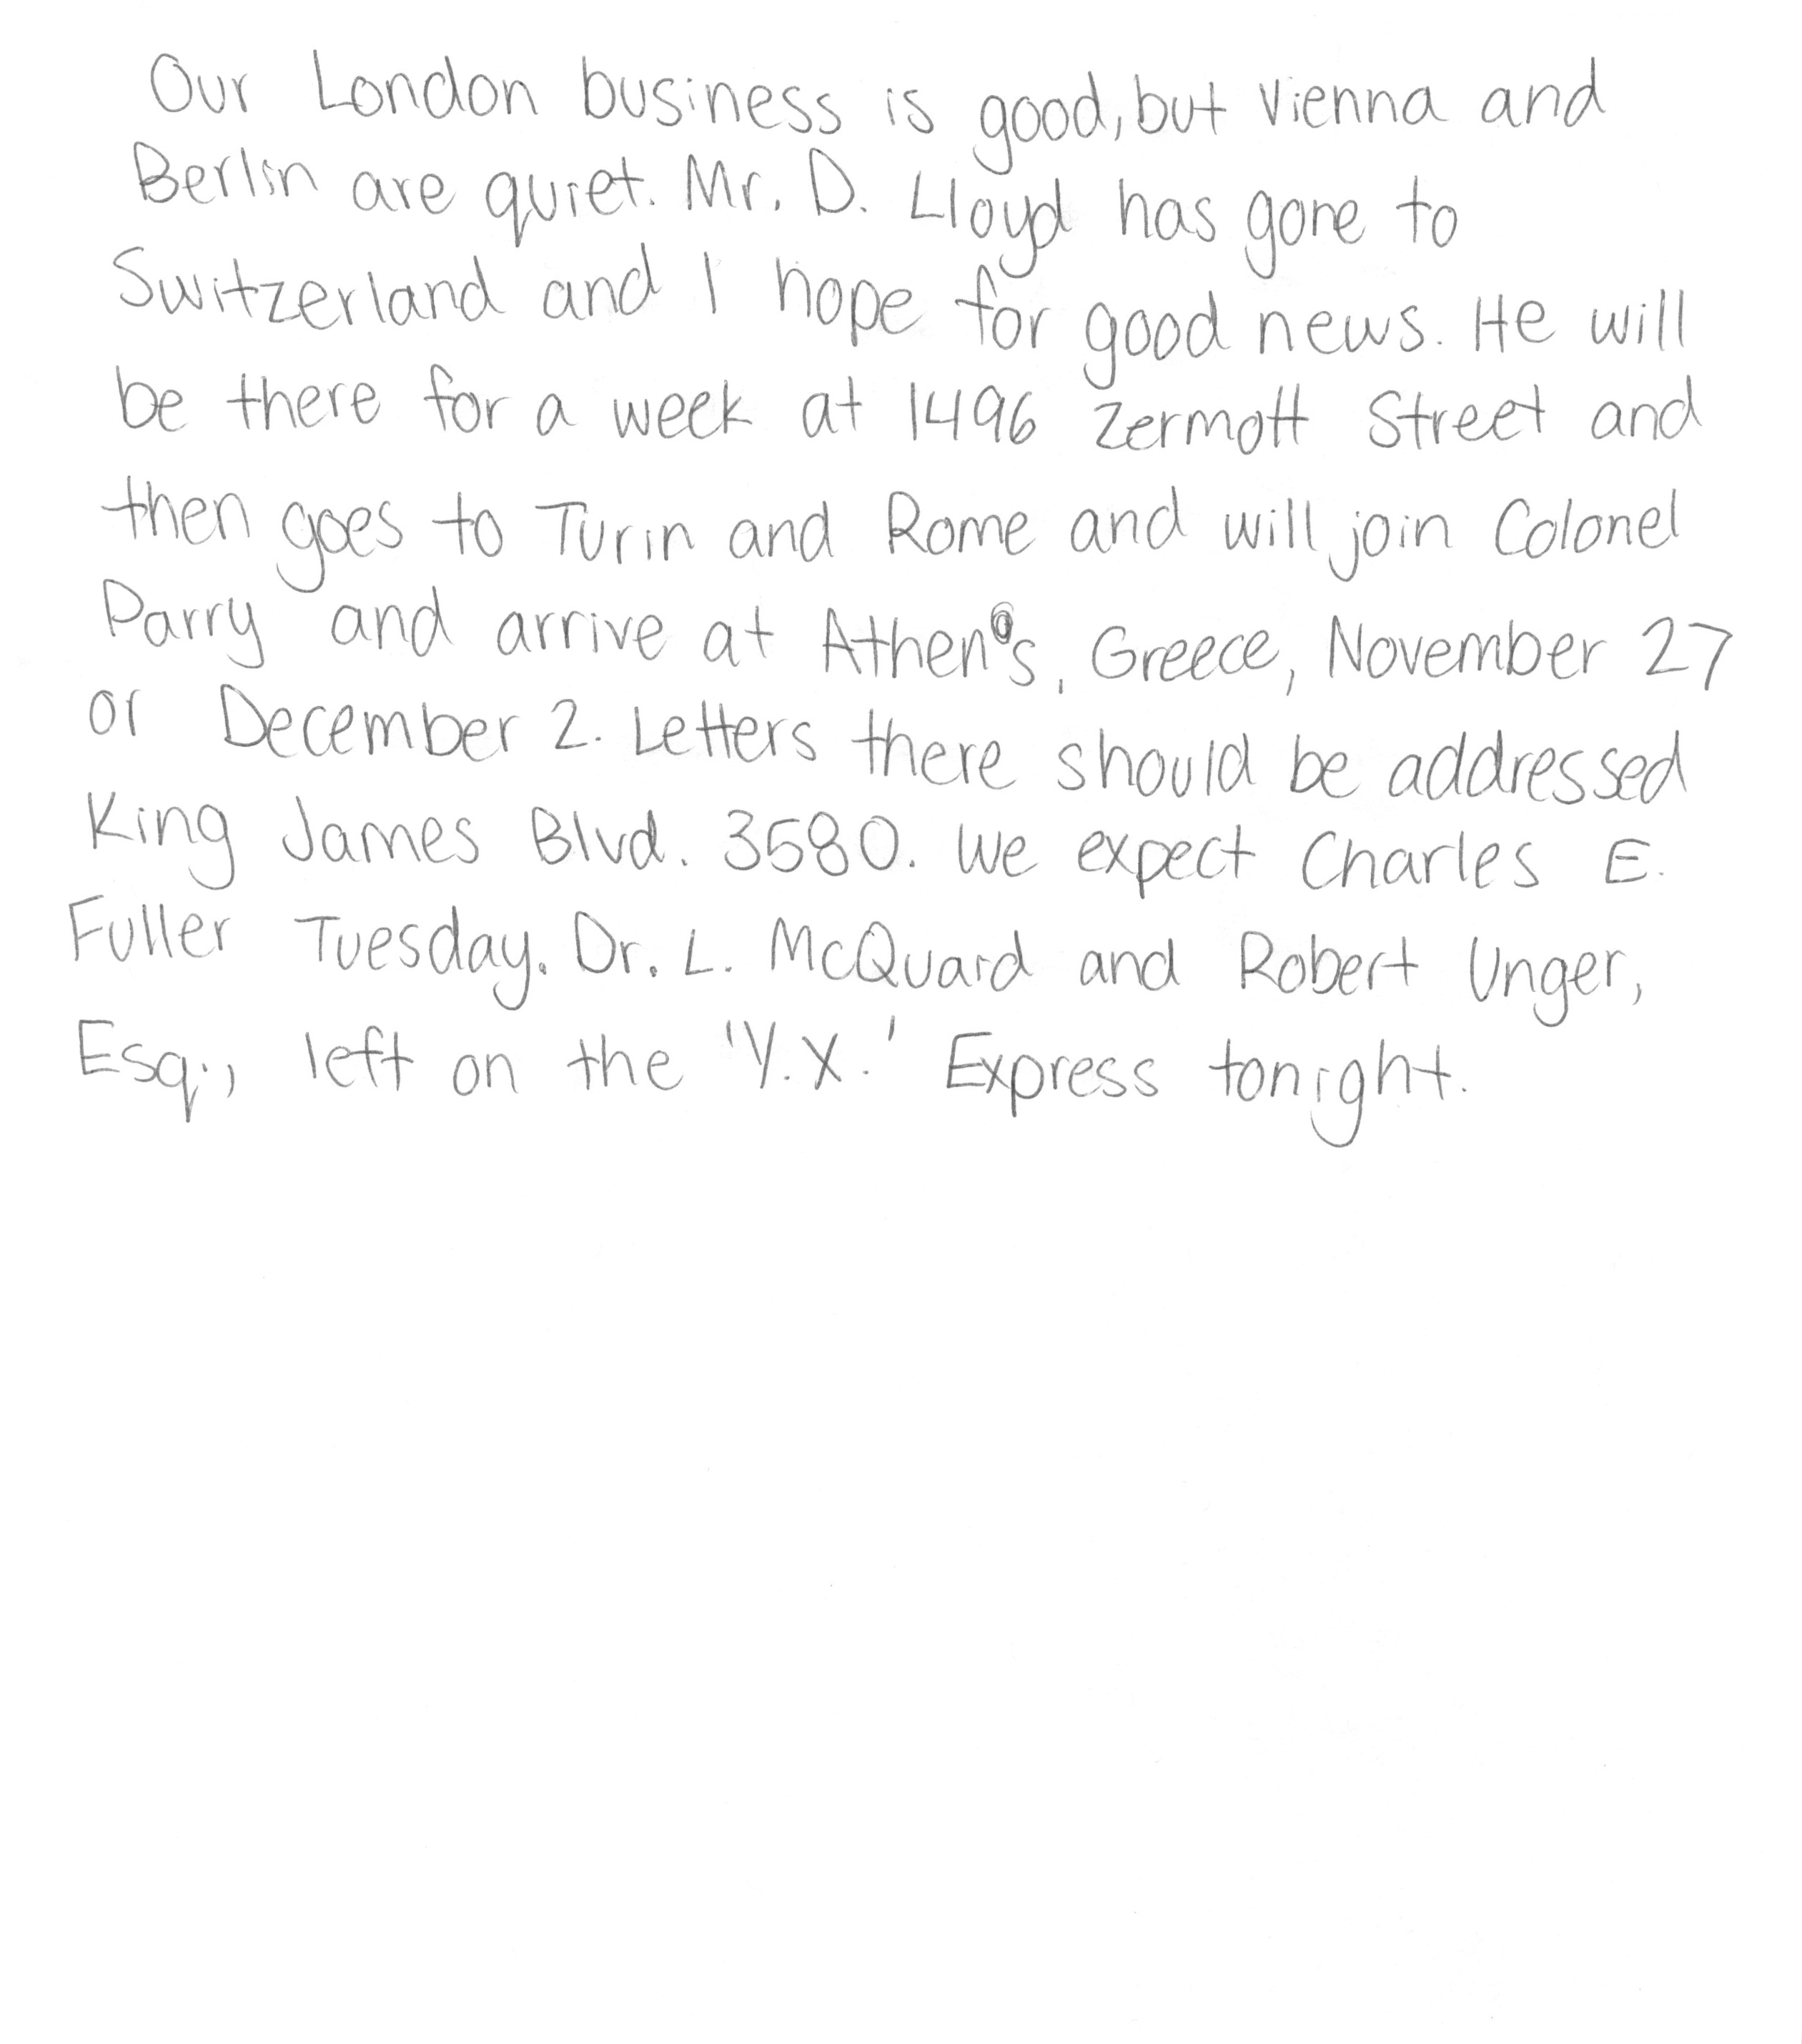 Our London business is good, but Vienna and
Berlin are quiet. Mr. D. Lloyd has gone to
Switzerland and I hope for good news. He will
be there for a week at 1496 Zermott Street and
then goes to Turin and Rome and will join Colonel
Parry and arrive at Athens, Greece, November 27
or December 2. Letters there should be addressed
King James Blvd. 3580. We expect Charles E.
Fuller Tuesday. Dr. L. McQuaid and Robert Unger,
Esq., left on the 'Y.X.' Express tonight.